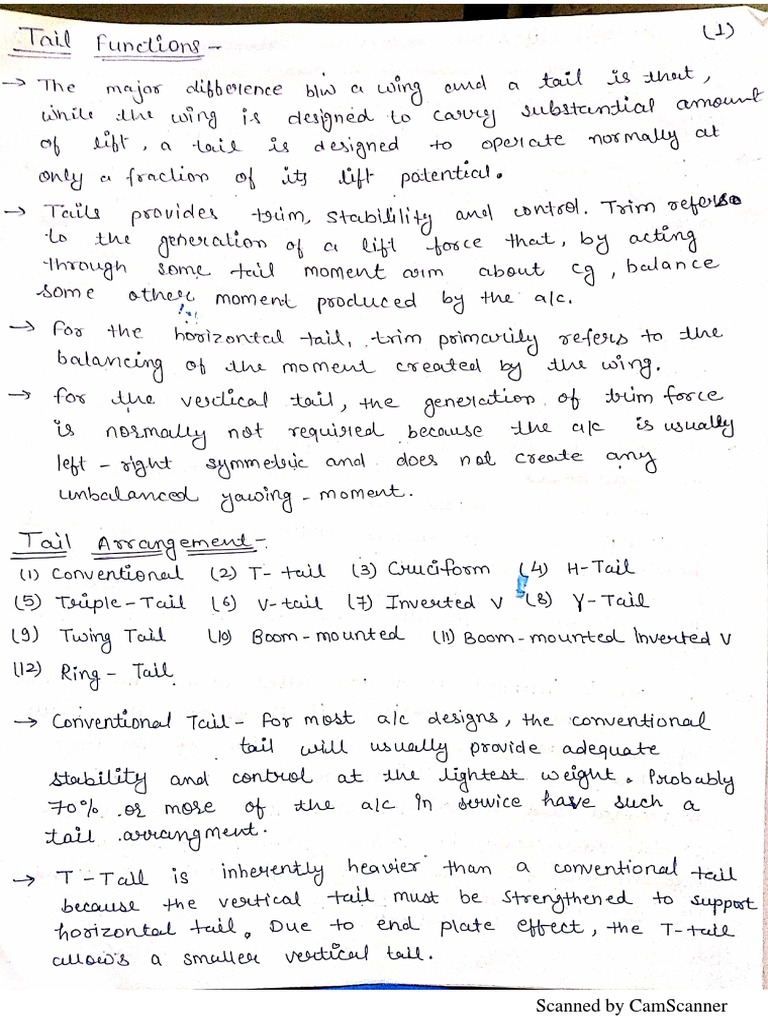 Tail Functions - (1)
→ The major difference b/w a wing and a tail is that,
while the wing is designed to carry substantial amount
of lift, a tail is designed to operate normally at
only a fraction of its lift potential.
→ Tails provides trim, stability and control. Trim refers
to the generation of a lift force that, by acting
through some tail moment arm about cg, balance
some other moment produced by the a/c.
→ for the horizontal tail, trim primarily refers to the
balancing of the moment created by the wing.
→ for the vertical tail, the generation of trim force
is normally not required because the a/c is usually
left - right symmetric and does not create any
unbalanced yawing - moment.
Tail Arrangement -
(1) Conventional (2) T- tail (3) Cruciform (4) H-Tail
(5) Triple-Tail (6) V-tail (7) Inverted V (8) Y-Tail
(9) Twing Tail (10) Boom-mounted (11) Boom-mounted Inverted V
(12) Ring - Tail
→ Conventional Tail - for most a/c designs, the conventional
tail will usually provide adequate
stability and control at the lightest weight. Probably
70% or more of the a/c in service have such a
tail arrangment.
→ T-Tail is inherently heavier than a conventional tail
because the vertical tail must be strengthened to support
horizontal tail. Due to end plate effect, the T-tail
allows a smaller vertical tail.
Scanned by CamScanner